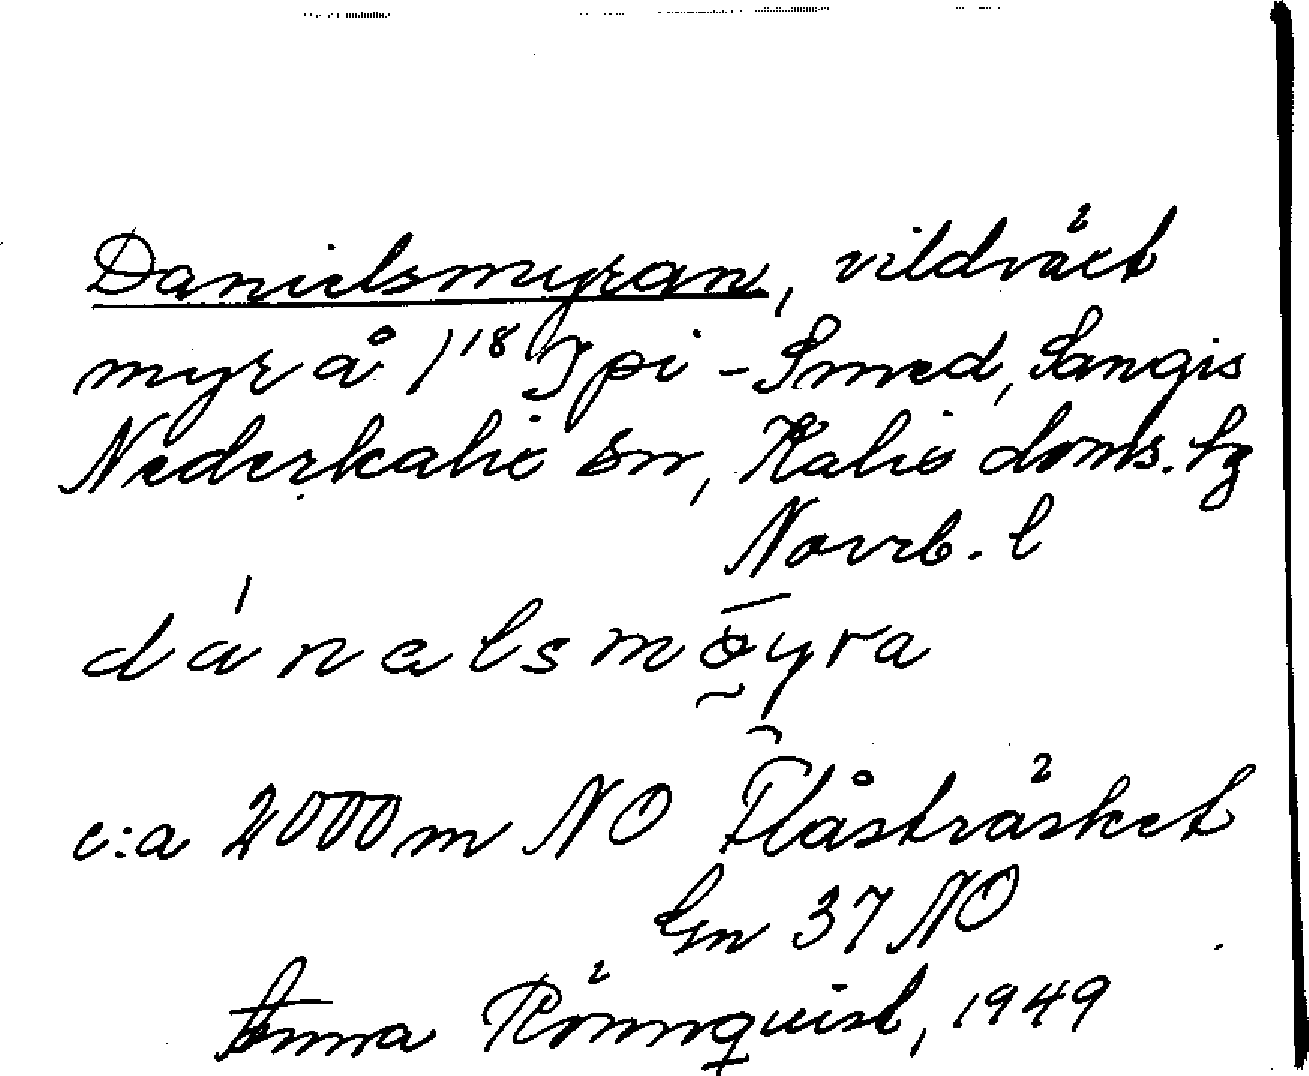 Danielsmyran, vildväxt
myr å 1¹⁸ Ypi - Smed, Sangis
Nederkalix sn, Kalix doms. tg
Norrb. l
dánalsmøyra
c:a 2000 m NO Flåsträsket
Gn 37 NO
Anna Rönnquist, 1949